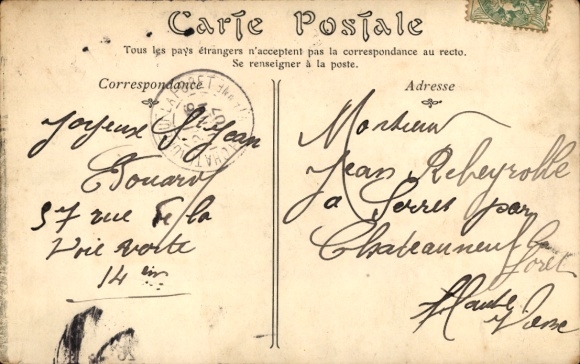 Carte Postale
Tous les pays étrangers n'acceptent pas la correspondance au recto.
Se renseigner à la poste.
Correspondance
Joyeux St Jean
Edouard
37 rue de la
Voie verte
14 em
Adresse
Monsieur
Jean Rebeyrolle
a Serret par
Chateauneuf la
Foret
Haute
Vienne